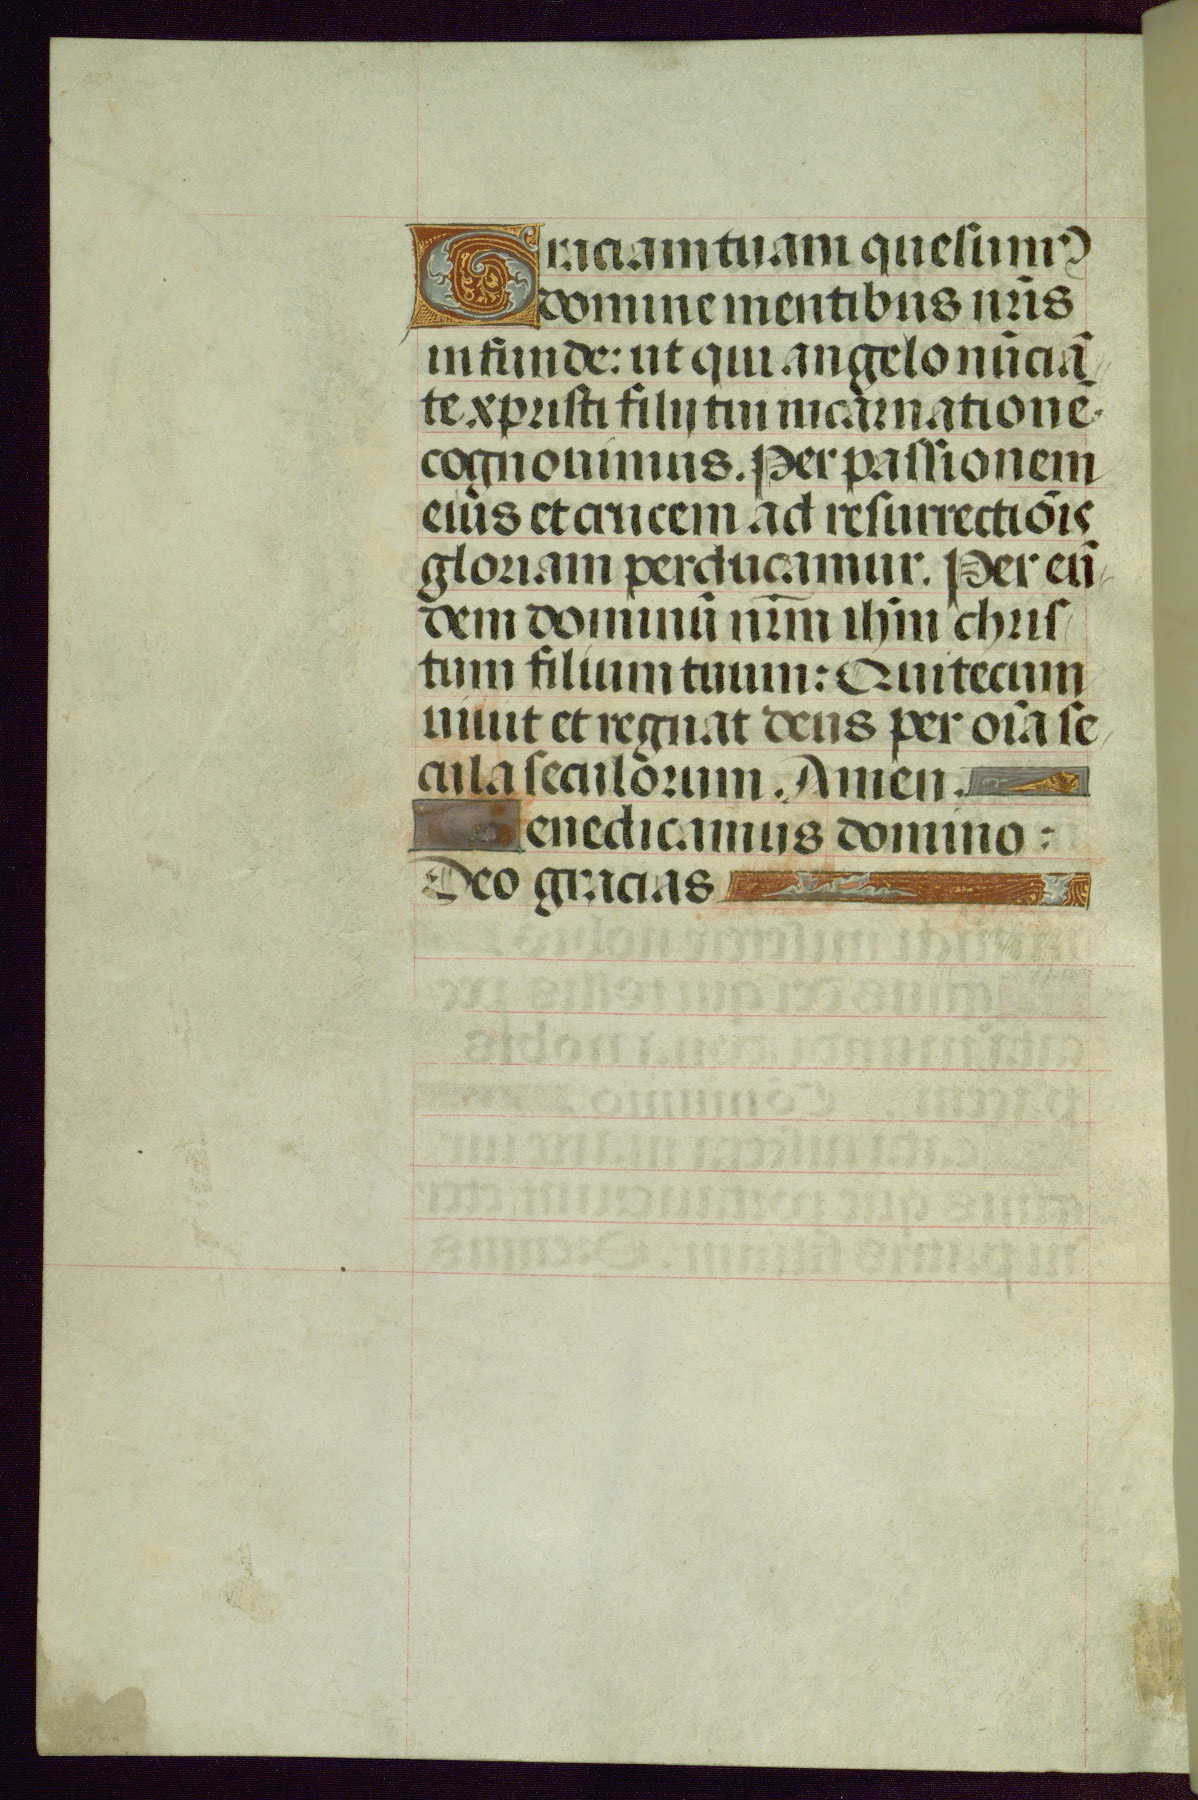 Graciam tuam quesum⁹
domine mentibus nr̄is
infunde: ut qui angelo nūciā
te xpristi filij tui incarnationē
cognouimus. Per passionem
eius et crucem ad resurrectiōis
gloriam perducamur. Per eū
dem dominū nr̄m ihm̄ chris
tum filium tuum: Qui tecum
uiuit et regnat deus per oīa se
cula seculorum. Amen.
enedicamus domino:
Deo gracias